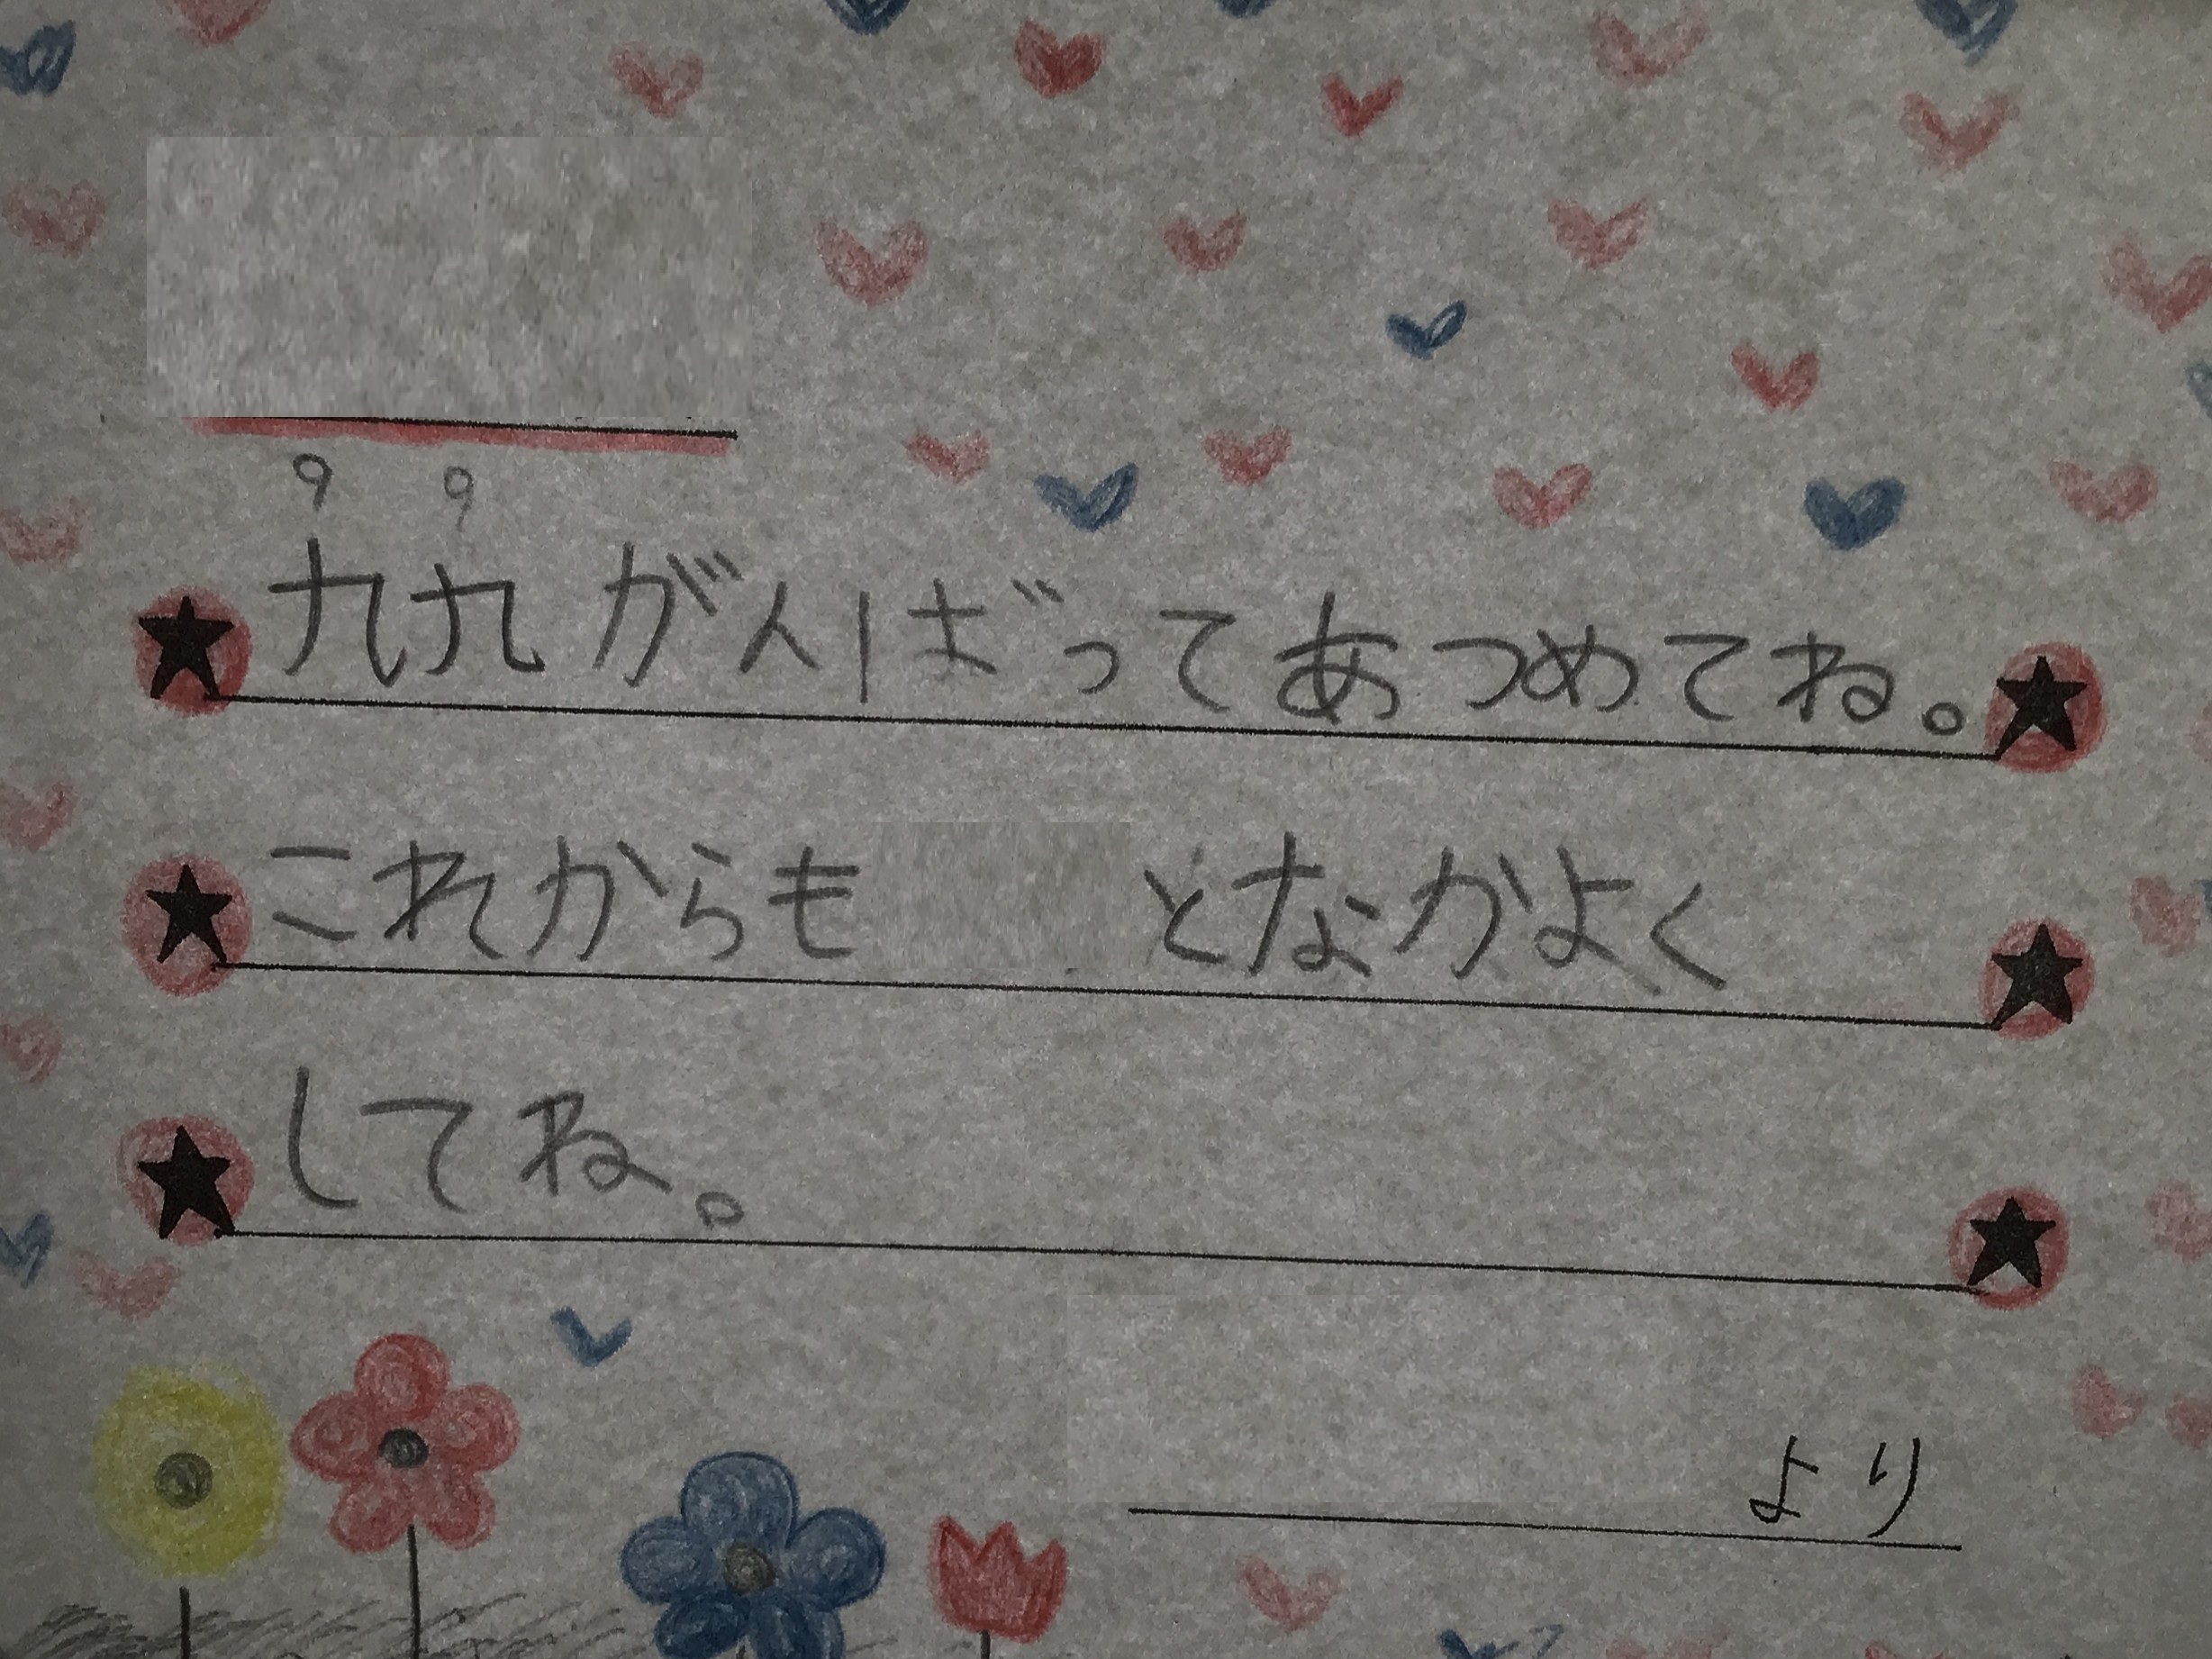 9 9
九九がんばってあつめてね。
これからも となかよく
してね。
より